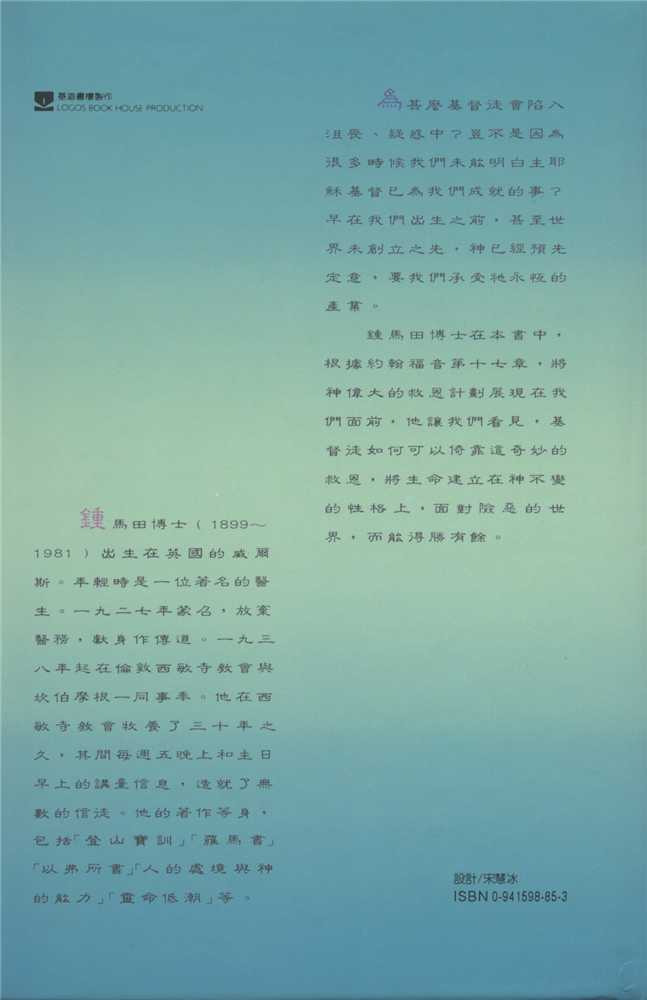 基道書樓製作
LOGOS BOOK HOUSE PRODUCTION
為甚麼基督徒會陷入
沮喪、疑惑中？豈不是因為
很多時候我們未能明白主耶
穌基督已為我們成就的事？
早在我們出生之前，甚至世
界未創立之先，神已經預先
定意，要我們承受祂永恆的
產業。
鍾馬田博士在本書中，
根據約翰福音第十七章，將
神偉大的救恩計劃展現在我
們面前，他讓我們看見，基
督徒如何可以倚靠這奇妙的
救恩，將生命建立在神不變
的性格上，面對險惡的世
界，而能得勝有餘。
鍾馬田博士（1899～
1981）出生在英國的威爾
斯。年輕時是一位著名的醫
生。一九二七年蒙召，放棄
醫務，獻身作傳道。一九三
八年起在倫敦西敏寺教會與
坎伯摩根一同事奉。他在西
敏寺教會牧養了三十年之
久，其間每週五晚上和主日
早上的講臺信息，造就了無
數的信徒。他的著作等身，
包括「登山寶訓」「羅馬書」
「以弗所書」「人的處境與神
的能力」「靈命低潮」等。
設計/宋慧冰
ISBN 0-941598-85-3